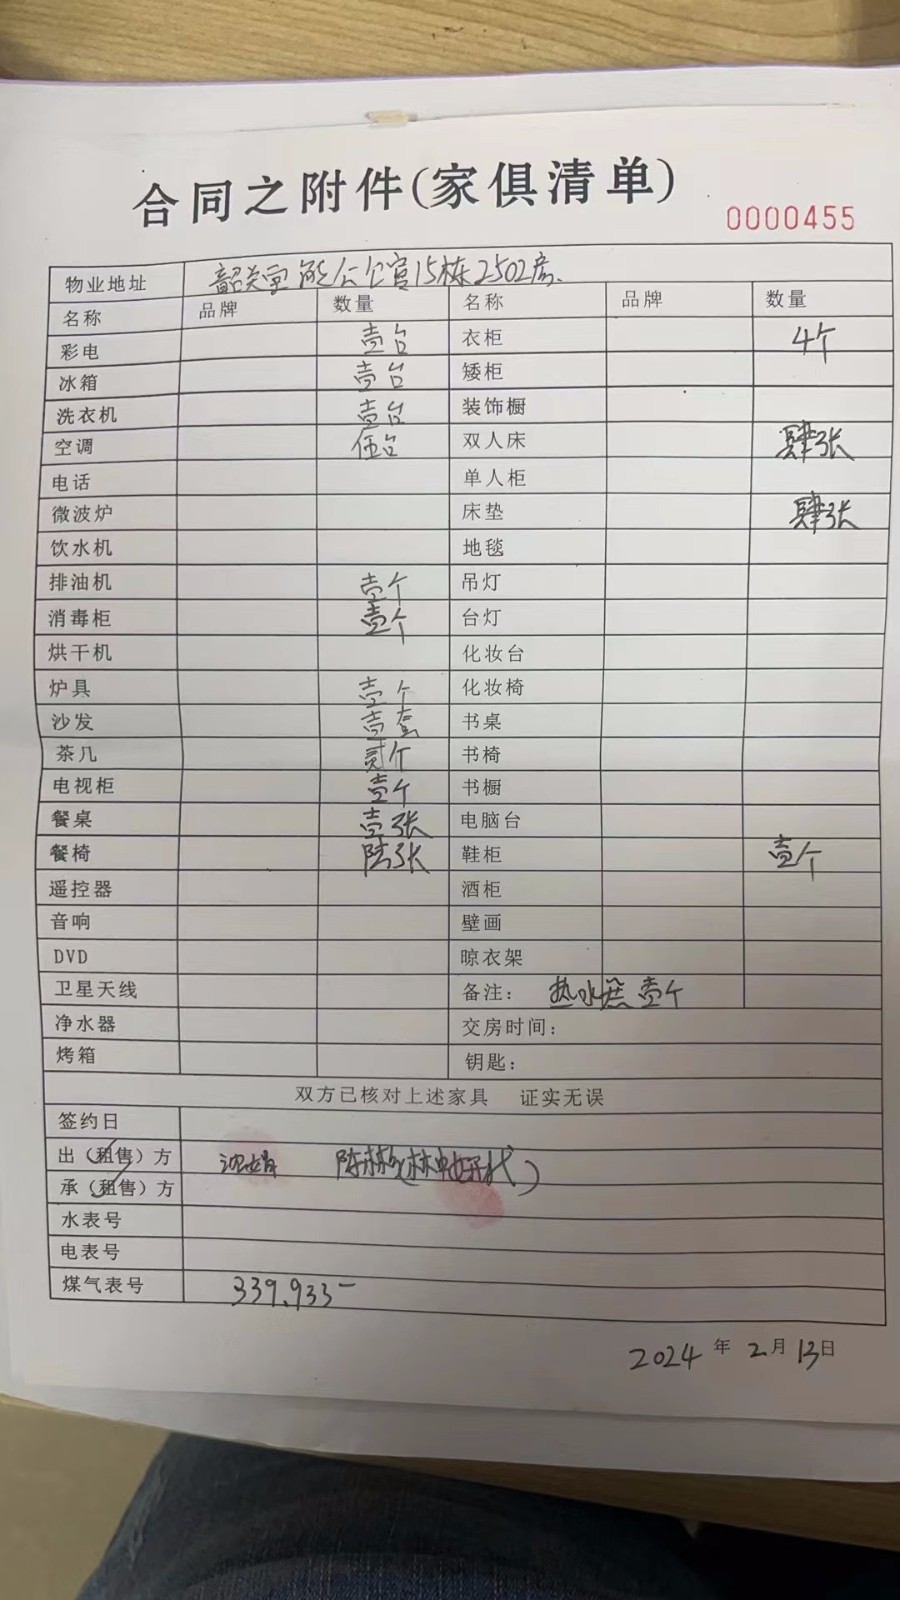 合同之附件(家俱清单)
0000455
物业地址 韶关 公官15栋2502房.
名称 品牌 数量 名称 品牌 数量
彩电 壹台 衣柜 4个
冰箱 壹台 矮柜
洗衣机 壹台 装饰橱
空调 伍台 双人床 肆张
电话 单人柜
微波炉 床垫 肆张
饮水机 地毯
排油机 壹个 吊灯
消毒柜 壹个 台灯
烘干机 化妆台
炉具 壹个 化妆椅
沙发 壹套 书桌
茶几 贰个 书椅
电视柜 壹个 书橱
餐桌 壹张 电脑台
餐椅 陆张 鞋柜 壹个
遥控器 酒柜
音响 壁画
DVD 晾衣架
卫星天线 备注: 热水器壹个
净水器 交房时间:
烤箱 钥匙:
双方已核对上述家具 证实无误
签约日
出（租售）方
承（租售）方
水表号
电表号
煤气表号 339.933
2024年2月13日